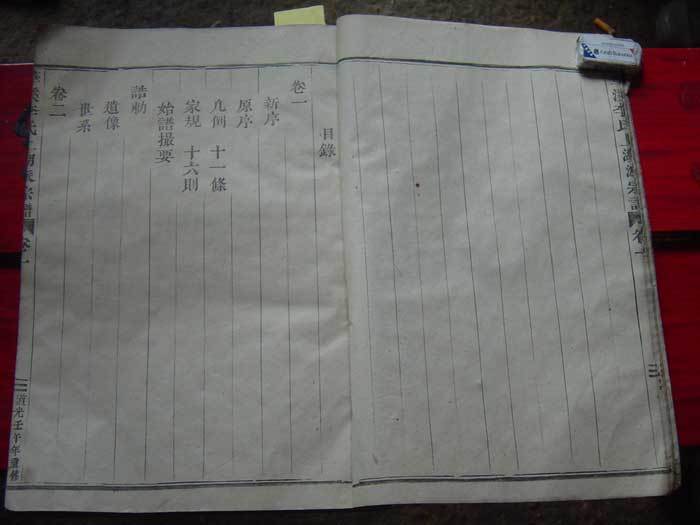 目錄
卷一
新序
原序
凡例 十一條
家規 十六則
始譜撮要
誥勅
遺像
世系
卷二
卷一
道光壬午年重修